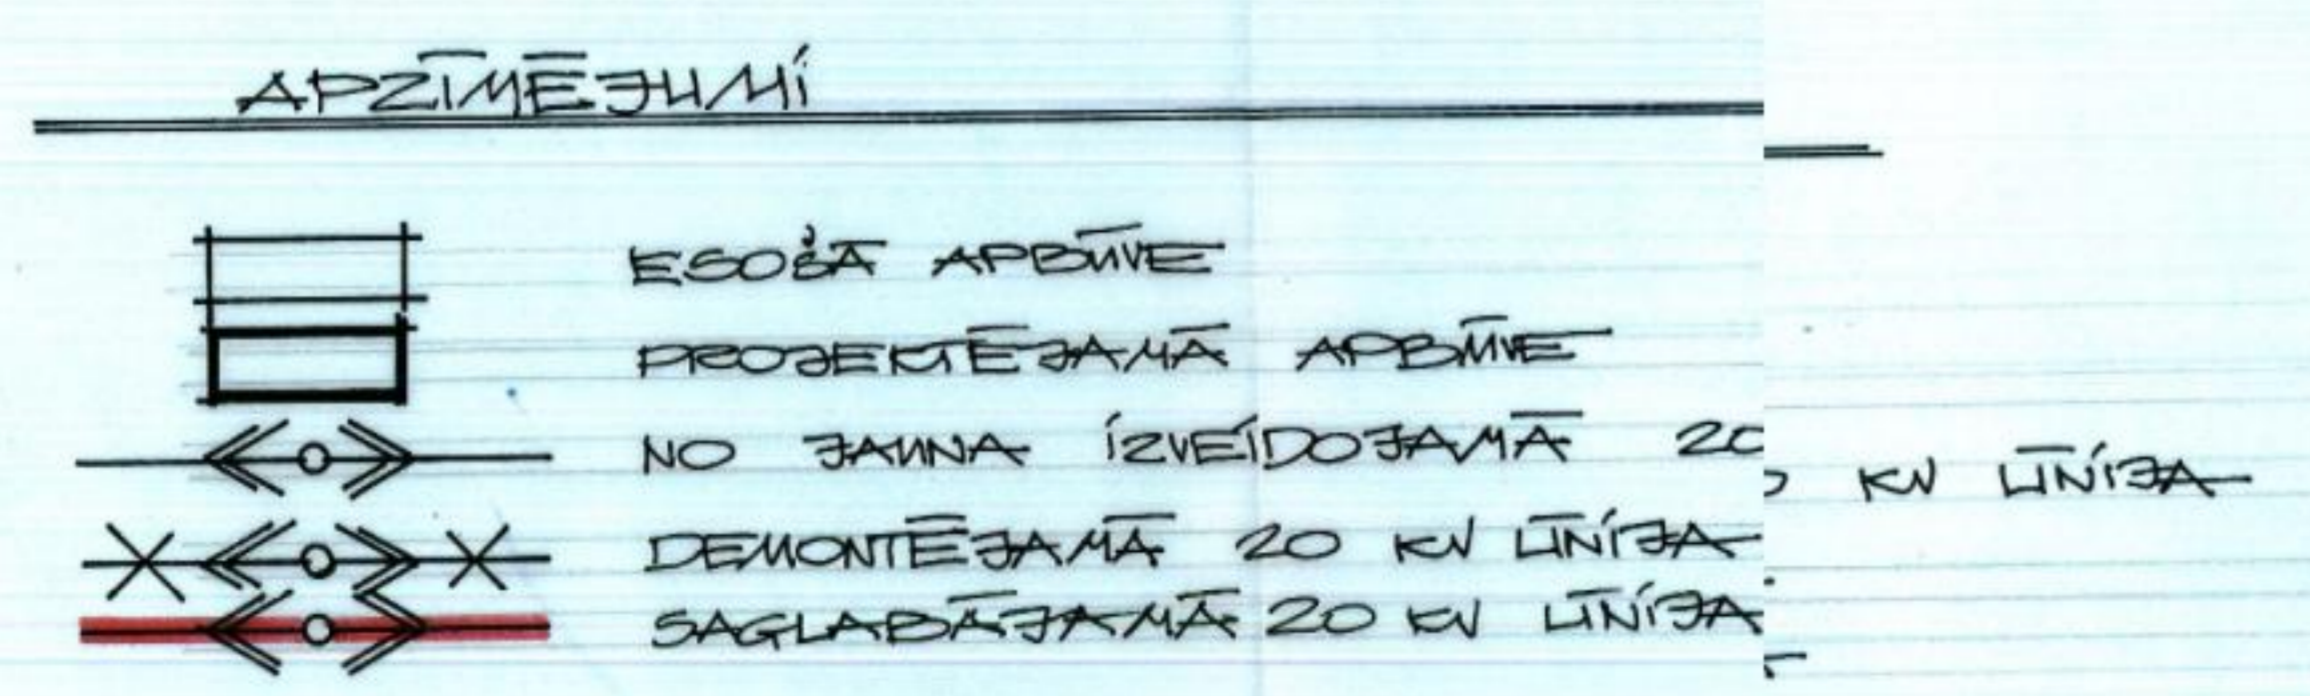 APZĪMĒJUMI
ESOŠĀ APBŪVE
PROJEKTĒJAMĀ APBŪVE
NO JAUNA IZVEIDOJAMĀ 20 KV LĪNIJA
DEMONTĒJAMĀ 20 KV LĪNIJA
SAGLABĀJAMĀ 20 KV LĪNIJA